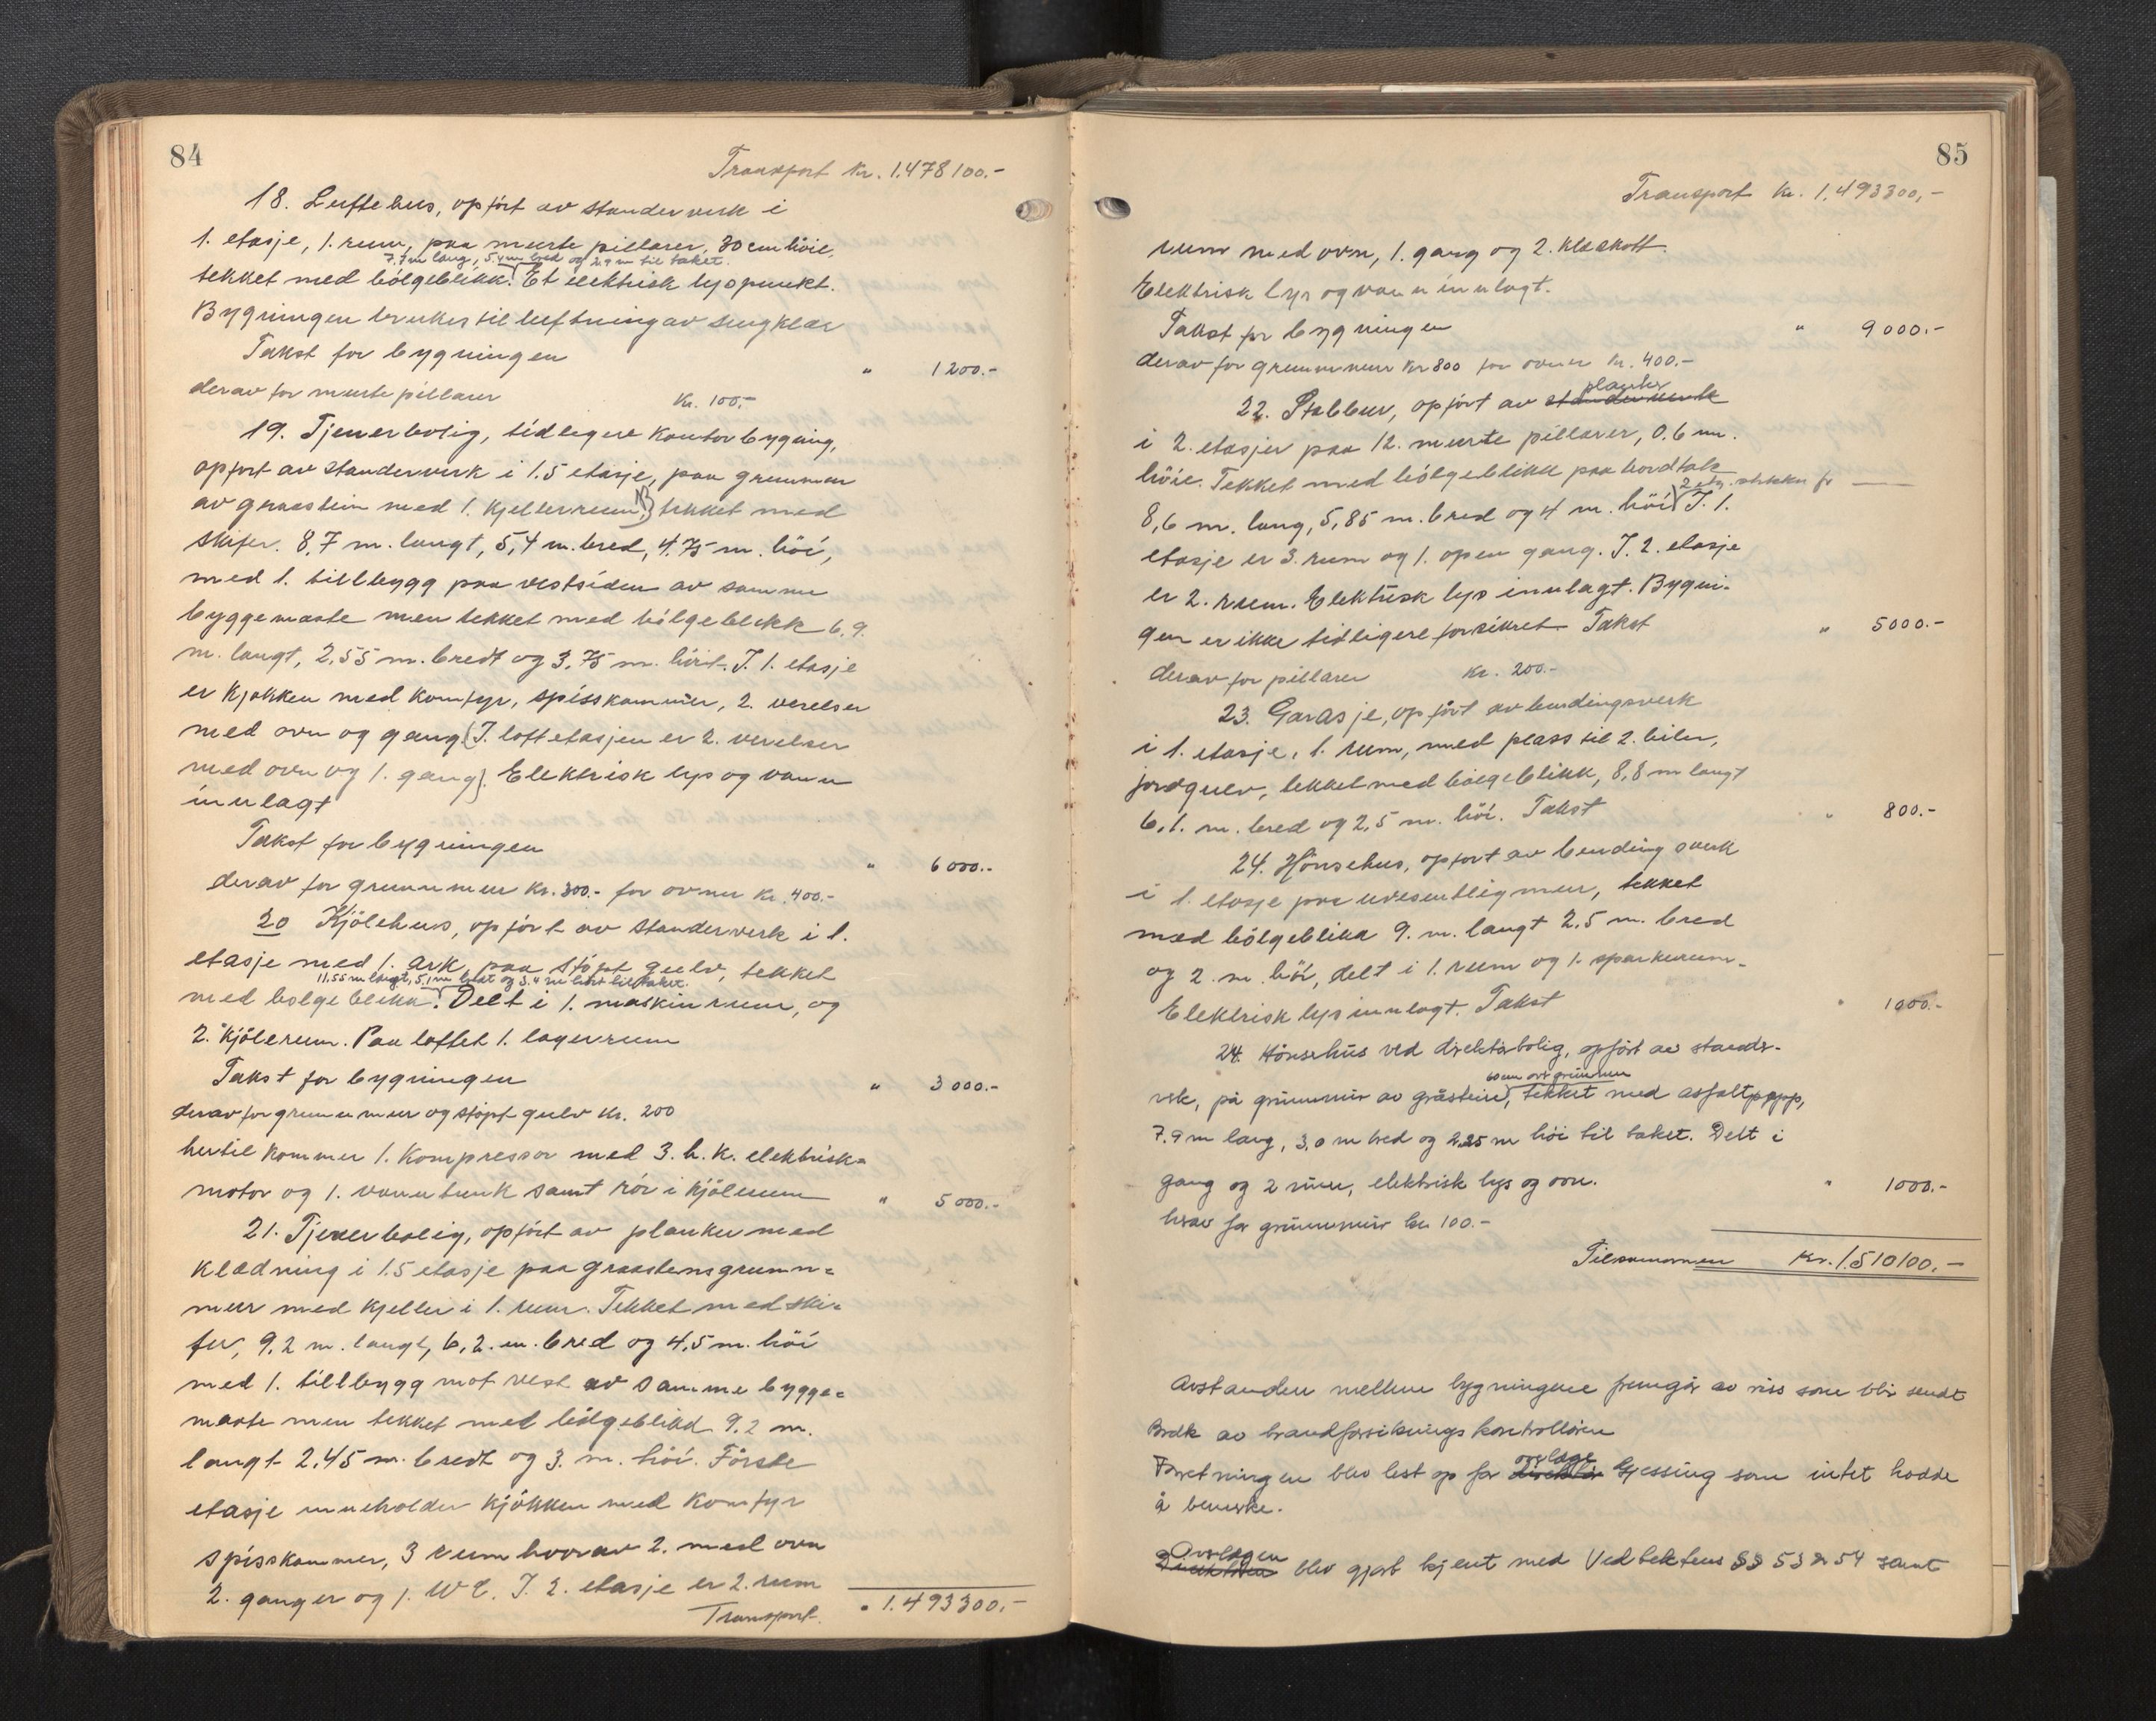 84
Transport Kr. 1.478100.-
18. Luftehus, opført av standerverk i
1. etasje, 1. rum, paa murte pillarer, 30 cm høie,
7.7 m lang, 5.4 m bred og 2.9 m til taket.
tekket med bölgeblikk. Et elektrisk lyspunkt.
Bygningen brukes til luftning av sengklær
Takst for bygningen " 1200.-
derav for murte pillarer Kr. 100.-
19. Tjenerbolig, tidligere kontorbygning,
opført av standerverk i 1.5 etasje, paa grunnmur
av graastein med 1. kjellerrum, tekket med
skifer. 8,7 m. langt, 5,4 m. bred, 4.75 m. höi,
med 1. tillbygg paa vestsiden av samme
byggemaate men tekket med bölgeblikk 6,9.
m. langt, 2,55 m. bredt og 3,75 m. höit. I. 1. etasje
er kjøkken med komfyr, spisskammer, 2. værelser
med ovn og gang. (I. loftetasjen er 2. værelser
med ovn og 1. gang). Elektrisk lys og vann
innlagt
Takst for bygningen " 6000.-
derav for grunnmur Kr. 300.- for ovner Kr. 400.-
20 Kjölehus, opført av standerverk i 1.
etasje med 1. ark, paa støpt gulv, tekket
11.55 m langt, 5,1 m bredt og 3.4 m höit til taket.
med bolgeblikk. Delt i 1. maskinrum, og
2. kjölerum. Paa loftet 1. lagerrum
Takst for bygningen " 3000.-
derav for grunnmur og støpt gulv Kr. 200
hertil kommer 1. Kompressor med 3. h. k. elektrisk=
motor og 1. vanntank samt rör i kjölerum " 5000.-
21. Tjenerbolig, opført av planker med
klædning i 1.5 etasje paa graastensgrunn=
mur med kjeller i 1. rum. Tekket med ski=
fer, 9,2 m. langt, 6,2. m. bred og 4,5 m. höi
med 1. tillbygg mot vest av samme bygge=
maate men tekket med bölgeblikk 9.2 m.
langt 2.45 m. bredt og 3. m. höi. Förste
etasje inneholder kjökken med komfyr
spisskammer, 3 rum hvorav 2. med ovn
2. ganger og 1. W C. I. 2. etasje er 2. rum
Transport. " 1.493300.-
85
Transport Kr. 1.493300,-
rum med ovn, 1. gang og 2. kleskott.
Elektrisk lys og vann innlagt.
Takst for bygningen " 9000.-
derav for grunnmur Kr 800 for ovner Kr. 400.-
planker
22. Stabbur, opført av standerverk
i 2. etasjer paa 12. murte pillarer, 0.6 m.
höie. Tekket med bölgeblikk paa bordtak
8,6 m. lang, 5,85 m. bred og 4 m. höi I. 1.
etasje er 3. rum og 1. open gang. I. 2. etasje
er 2. rum. Elektrisk lys innlagt. Bygni-
gen er ikke tidligere forsikret. Takst " 5000.-
derav for pillarer Kr. 200.-
23. Garasje, opført av bindingsverk
i 1. etasje, 1. rum, med plass til 2. biler,
jordgulv, tekket med bölgeblikk, 8,8 m langt
6,1. m. bred og 2,5 m. höi. Takst " 800.-
24. Hönsehus, opført av bindingsverk
i 1. etasje paa uvesentlig mur, tekket
med bölgeblikk 9. m. langt 2,5 m. bred
og 2. m. höi, delt i 1. rum og 1. sparkerum.
Elektrisk lys innlagt. Takst " 1000.-
24. Hönsehus ved direktörbolig, opført av stander-
60 cm over grunnen
verk, på grunnmur av gråstein, tekket med asfaltpapp,
7.9 m lang, 3,0 m bred og 2,25 m höi til taket. Delt i
gang og 2 rum, elektrisk lys og ovn. " 1000.-
herav for grunnmur kr 100.-
Tilsammen Kr. 1.510100.-
Avstanden mellem bygningene fremgår av riss som blir sendt
Brdk av brandforsikringskontrolløren
overlæge
Forretningen blev lest op for direktör Gjessing som intet hadde
å bemerke.
Overlægen
Direktören blev gjort kjent med Vedtektens §§ 53 & 54 samt